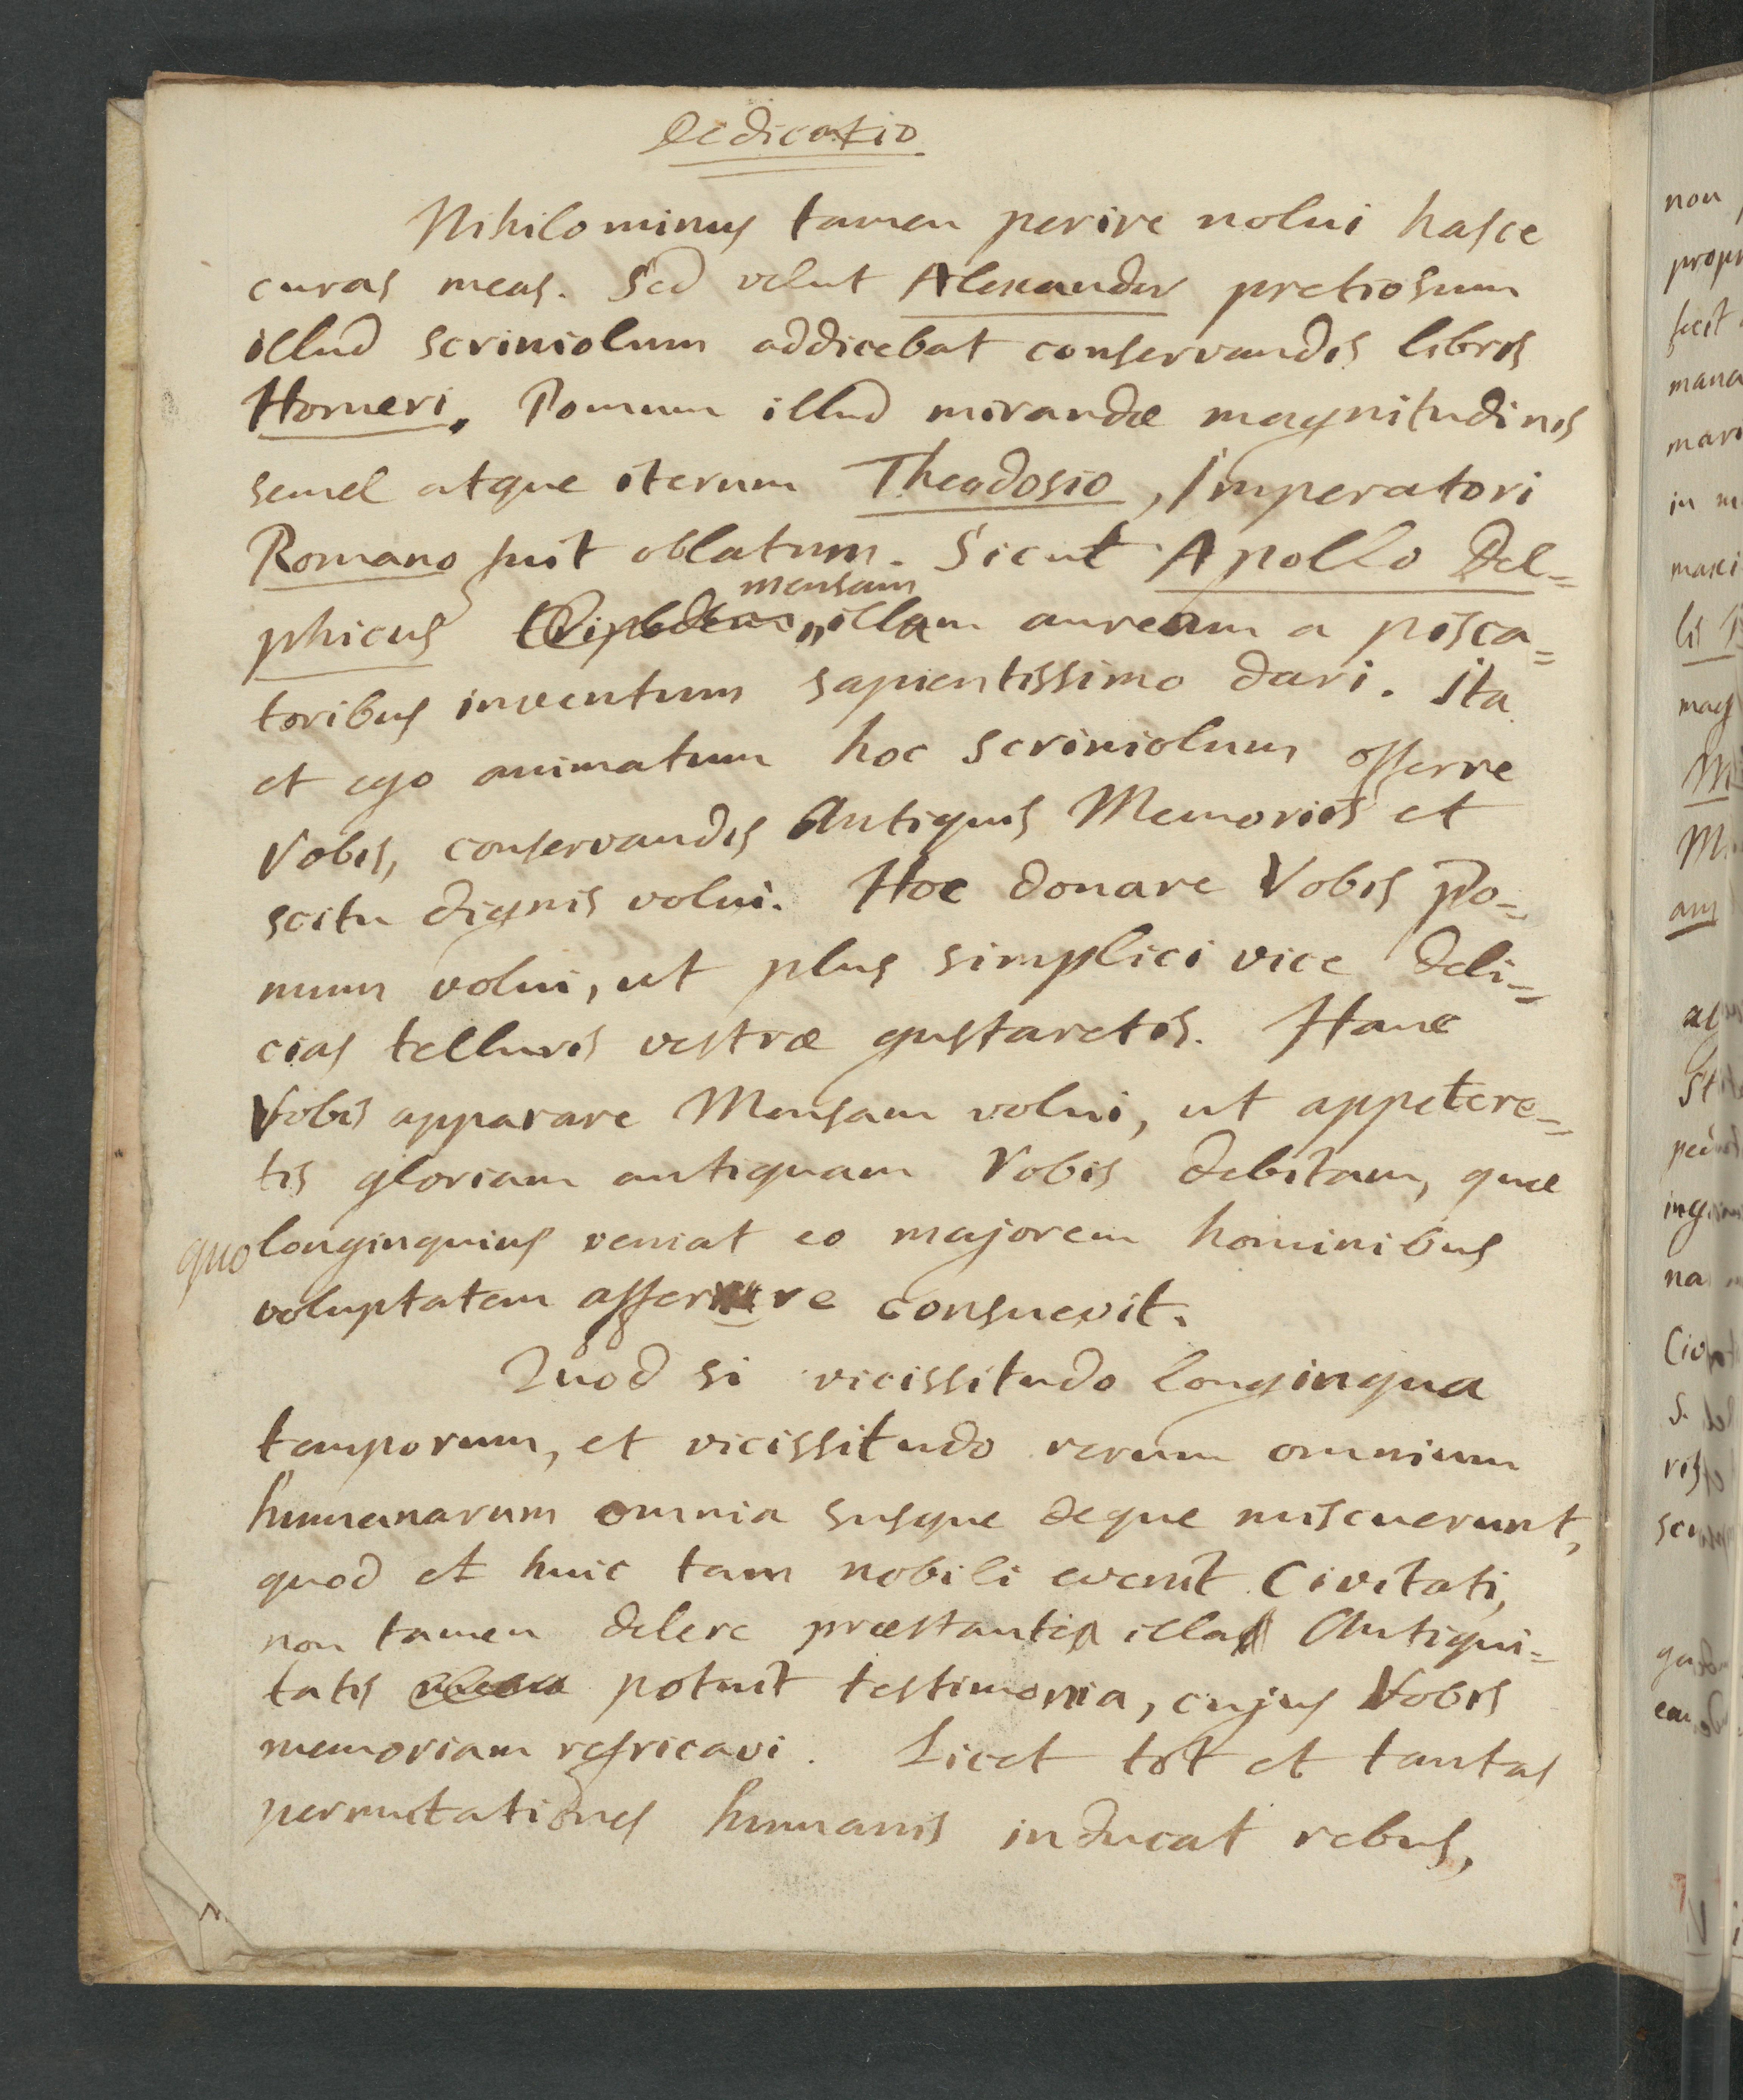 Dedicatio
Nihilominus tamen perire nolui hasce
curas meas. Sed velut Alexander pretiosum
illud scriniolum addicebat conservandis libris
Homeri. Pomum illud mirandæ magnitudinis
semel atque iterum Theodosio, Imperatori
Romano fuit oblatum. Sicut Apollo Del=
mensam
phicus illam auream a pisca=
toribus inventum sapientissimo dari. Ita
et ego animatum hoc scriniolum offerre
Vobis, conservandis Antiquis Memoriis et
scitu dignis volui. Hoc donare Vobis Po=
mum volui, ut plus simplici vice deli=
cias telluris vestræ gustaretis. Hanc
Vobis apparare Mensam volui, ut appetere=
tis gloriam antiquam Vobis debitam, quæ
quo longinquius veniat eo majorem hominibus
voluptatem afferre consuevit.
Quod si vicissitudo longinqua
temporum, et vicissitudo rerum omnium
humanarum omnia susque deque miscuerunt,
quod et huic tam nobili evenit Civitati,
non tamen delere præstantia illa Antiqui=
tatis potuit testimonia, cujus Vobis
memoriam refricavi. Licet tot et tantas
permutationes humanis inducat rebus,
non
fecit
in